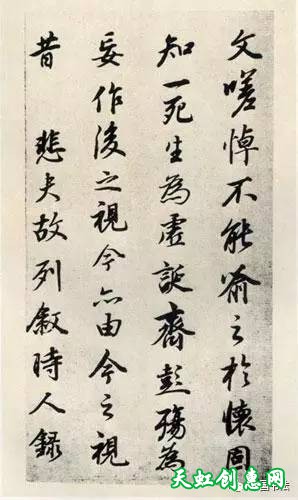 文嗟悼不能喻之於懷固
知一死生為虛誕齊彭殤為
妄作後之視今亦由今之視
昔 悲夫故列敘時人錄
天虹创意网
书法